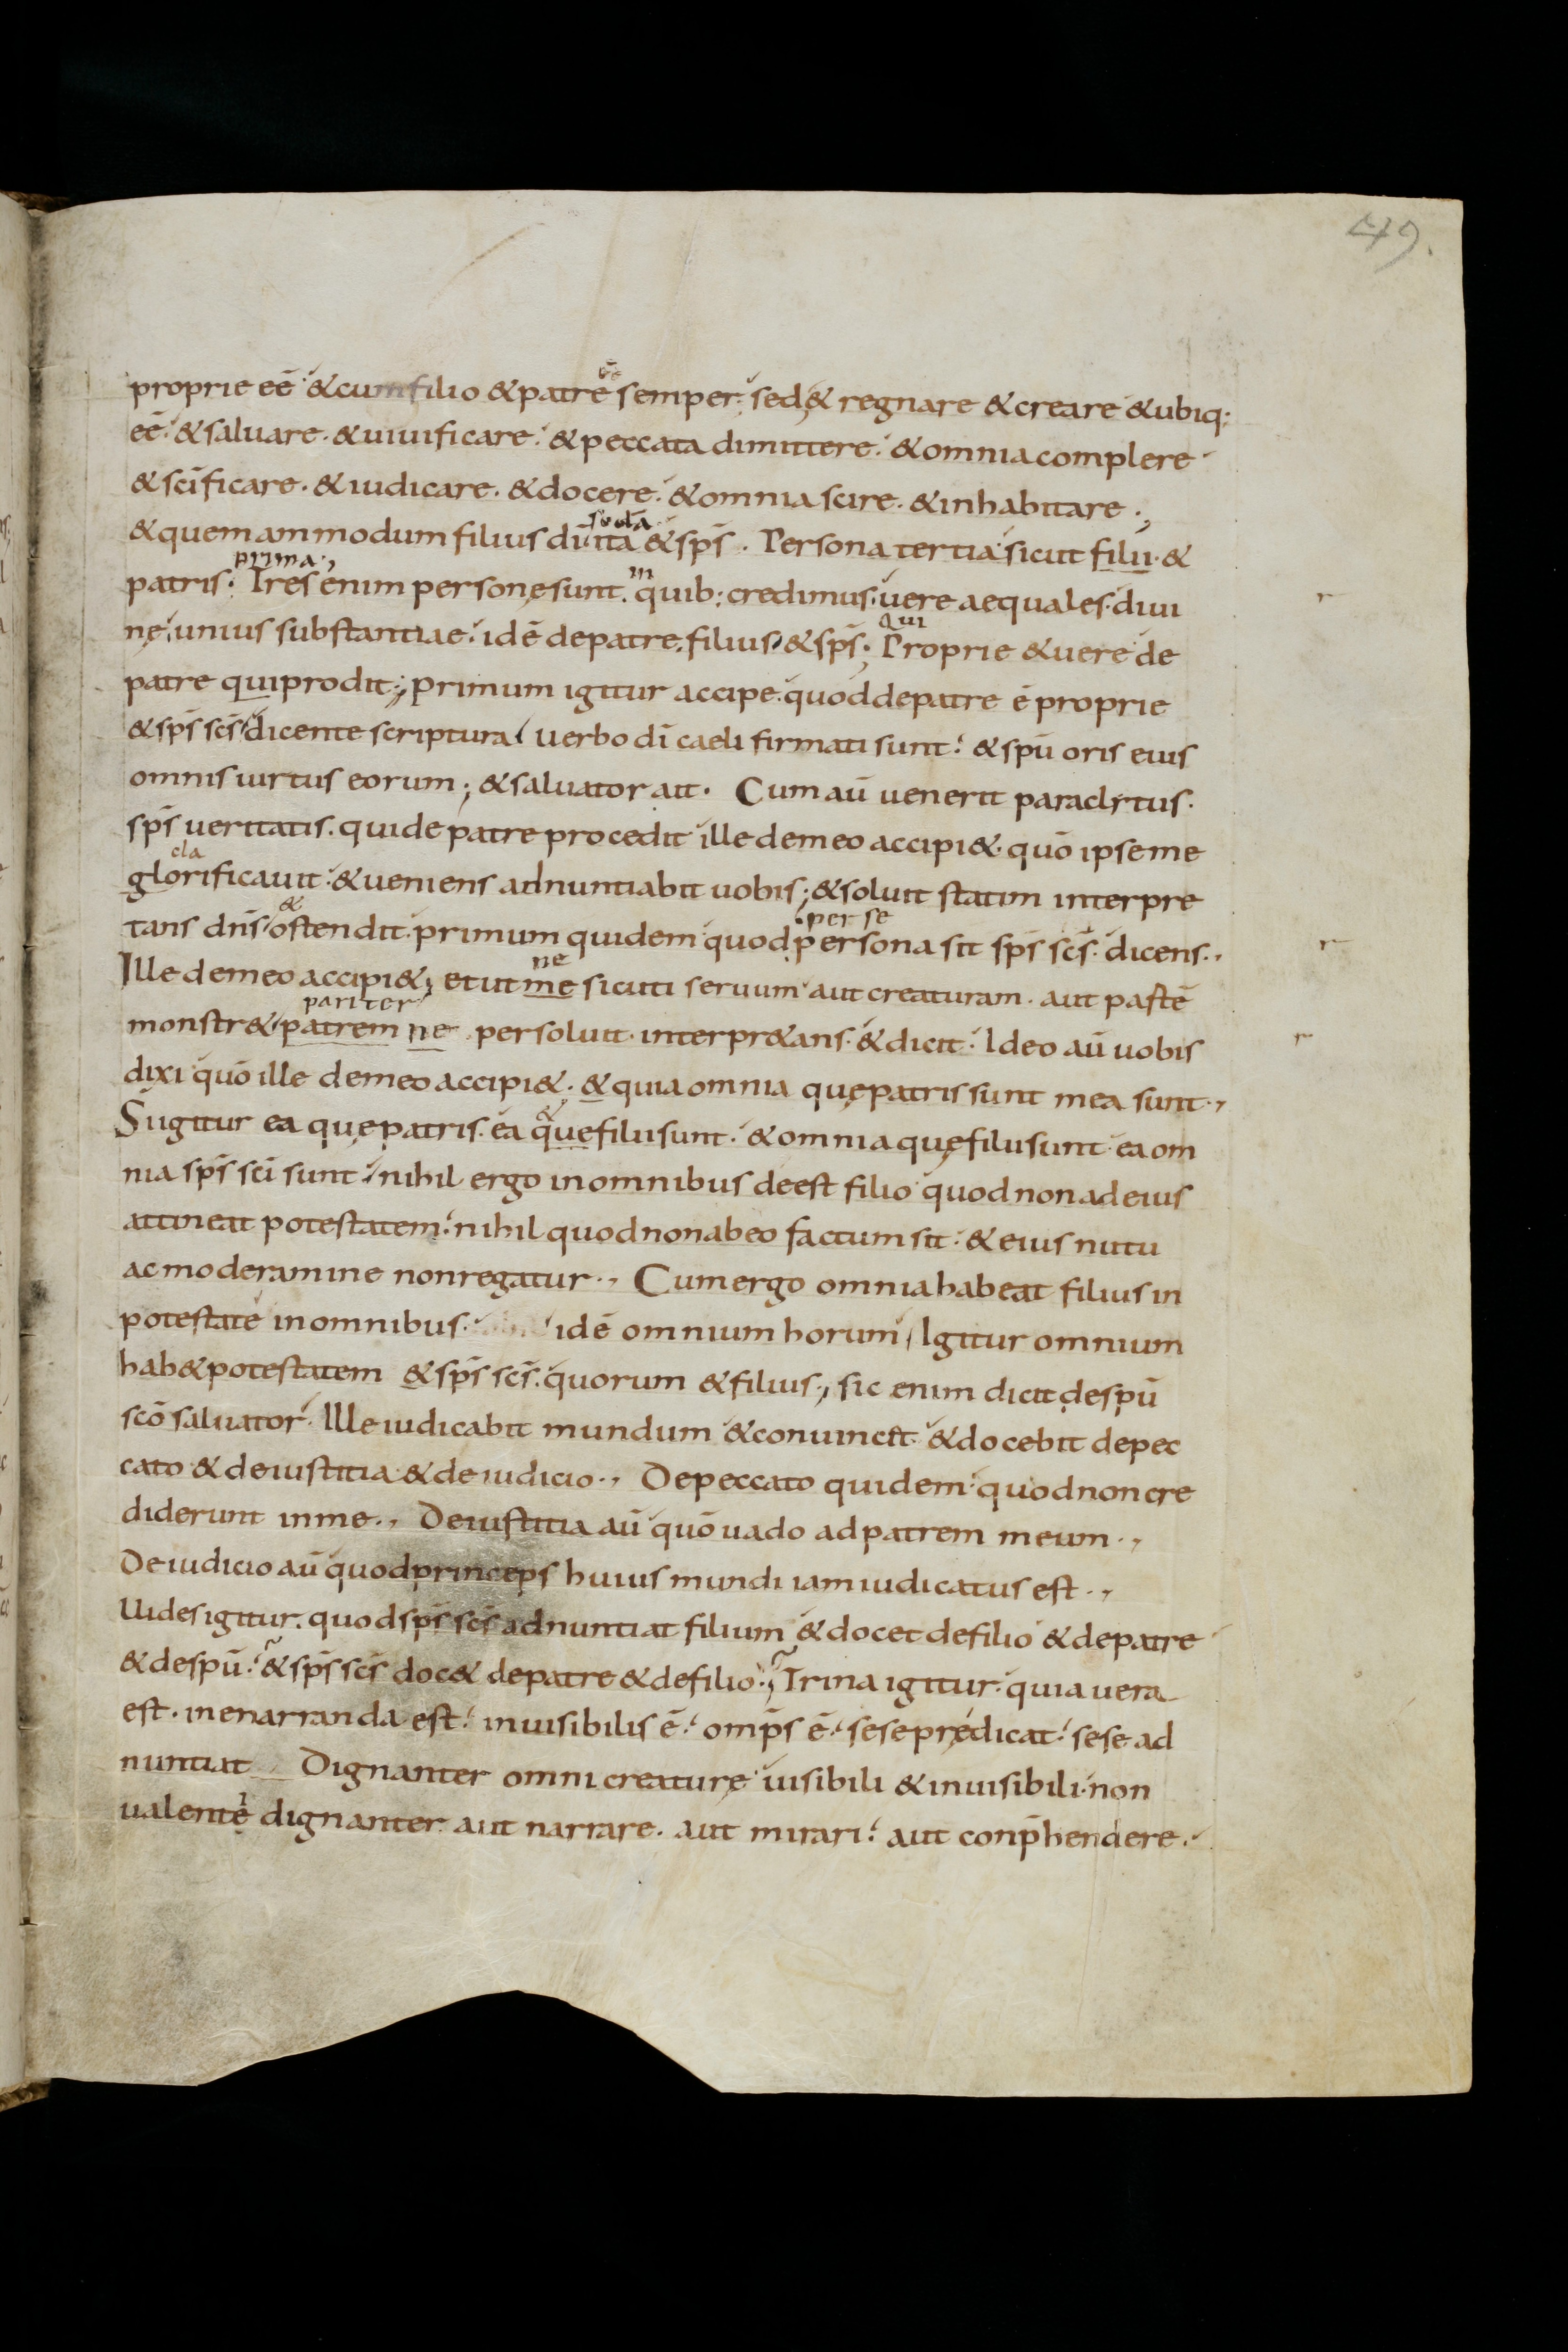 49.
proprie eē & cum filio & patre ēē semper. sed & regnare & creare & ubiq:
eē & saluare. & uiuificare. & peccata dimittere. & omnia complere
& scīficare. & iudicare. & docere. & omnia scire. & inhabitare.;
secda
& quemammodum filius di ita & sps̄. Persona tertia sicut filii. &
prima.,
patris. Tres enim personę sunt. in quib: credimus. uere aequales. diui
qui
nę unius substantiae. idē de patre. filius & sps̄; Proprie & uere de
patre qui prodit; primum igitur accipe. quod de patre ē proprie
& sps̄ scs̄ dicente scriptura. uerbo dī caeli firmati sunt. & spū oris eius
omnis uirtus eorum; & saluator ait. Cum aū uenerit paraclytus.
sps̄ ueritatis. qui de patre procedit ille de meo accipi&. quō ipse me
cla
glorificauit. & ueniens adnuntiabit uobis; & soluit statim interpre
& per se
tans dn̄s ostendit. primum quidem quod persona sit sps̄ scs̄. dicens.,
ne
Ille de meo accipi&; et ut me sicuti seruum aut creaturam. aut pastē
pariter
monstr& patrem ne persoluit. interpr&ans. & dicit. Ideo aū uobis
dixi quō ille de meo accipi&. & quia omnia quę patris sunt mea sunt.,
&
Si igitur ea quę patris. ea que filii sunt. & omnia quę filii sunt ea om
nia sps̄ scī sunt. nihil ergo in omnibus deest filio quod non ad eius
attineat potestatem. nihil quod non ab eo factum sit. & eius nutu
ac moderamine non regatur., Cum ergo omnia habeat filius in
potestate in omnibus. idē omnium horum. Igitur omnium
hab& potestatem & sps̄ scs̄. quorum & filius., sic enim dicit de spū
scō saluator. Ille iudicabit mundum & conuincet. & docebit de pec
cato & de iustitia & de iudicio., De peccato quidem. quod non cre
diderunt in me., De iustitia aū quō uado ad patrem meum.,
De iudicio aū quod princeps huius mundi iam iudicatus est.,
Uides igitur. quod sps̄ scs̄ adnuntiat filium & docet de filio & de patre
& de spū. & sps̄ scs̄ doc& de patre & de filio.; Trina igitur. quia uera
est. inenarranda est. inuisibilis ē. omps̄ ē. sese prędicat. sese ad
nuntiat Dignanter omni creaturę uisibili & inuisibili. non
ualente dignanter aut narrare. aut mirari. aut conp̄hendere.